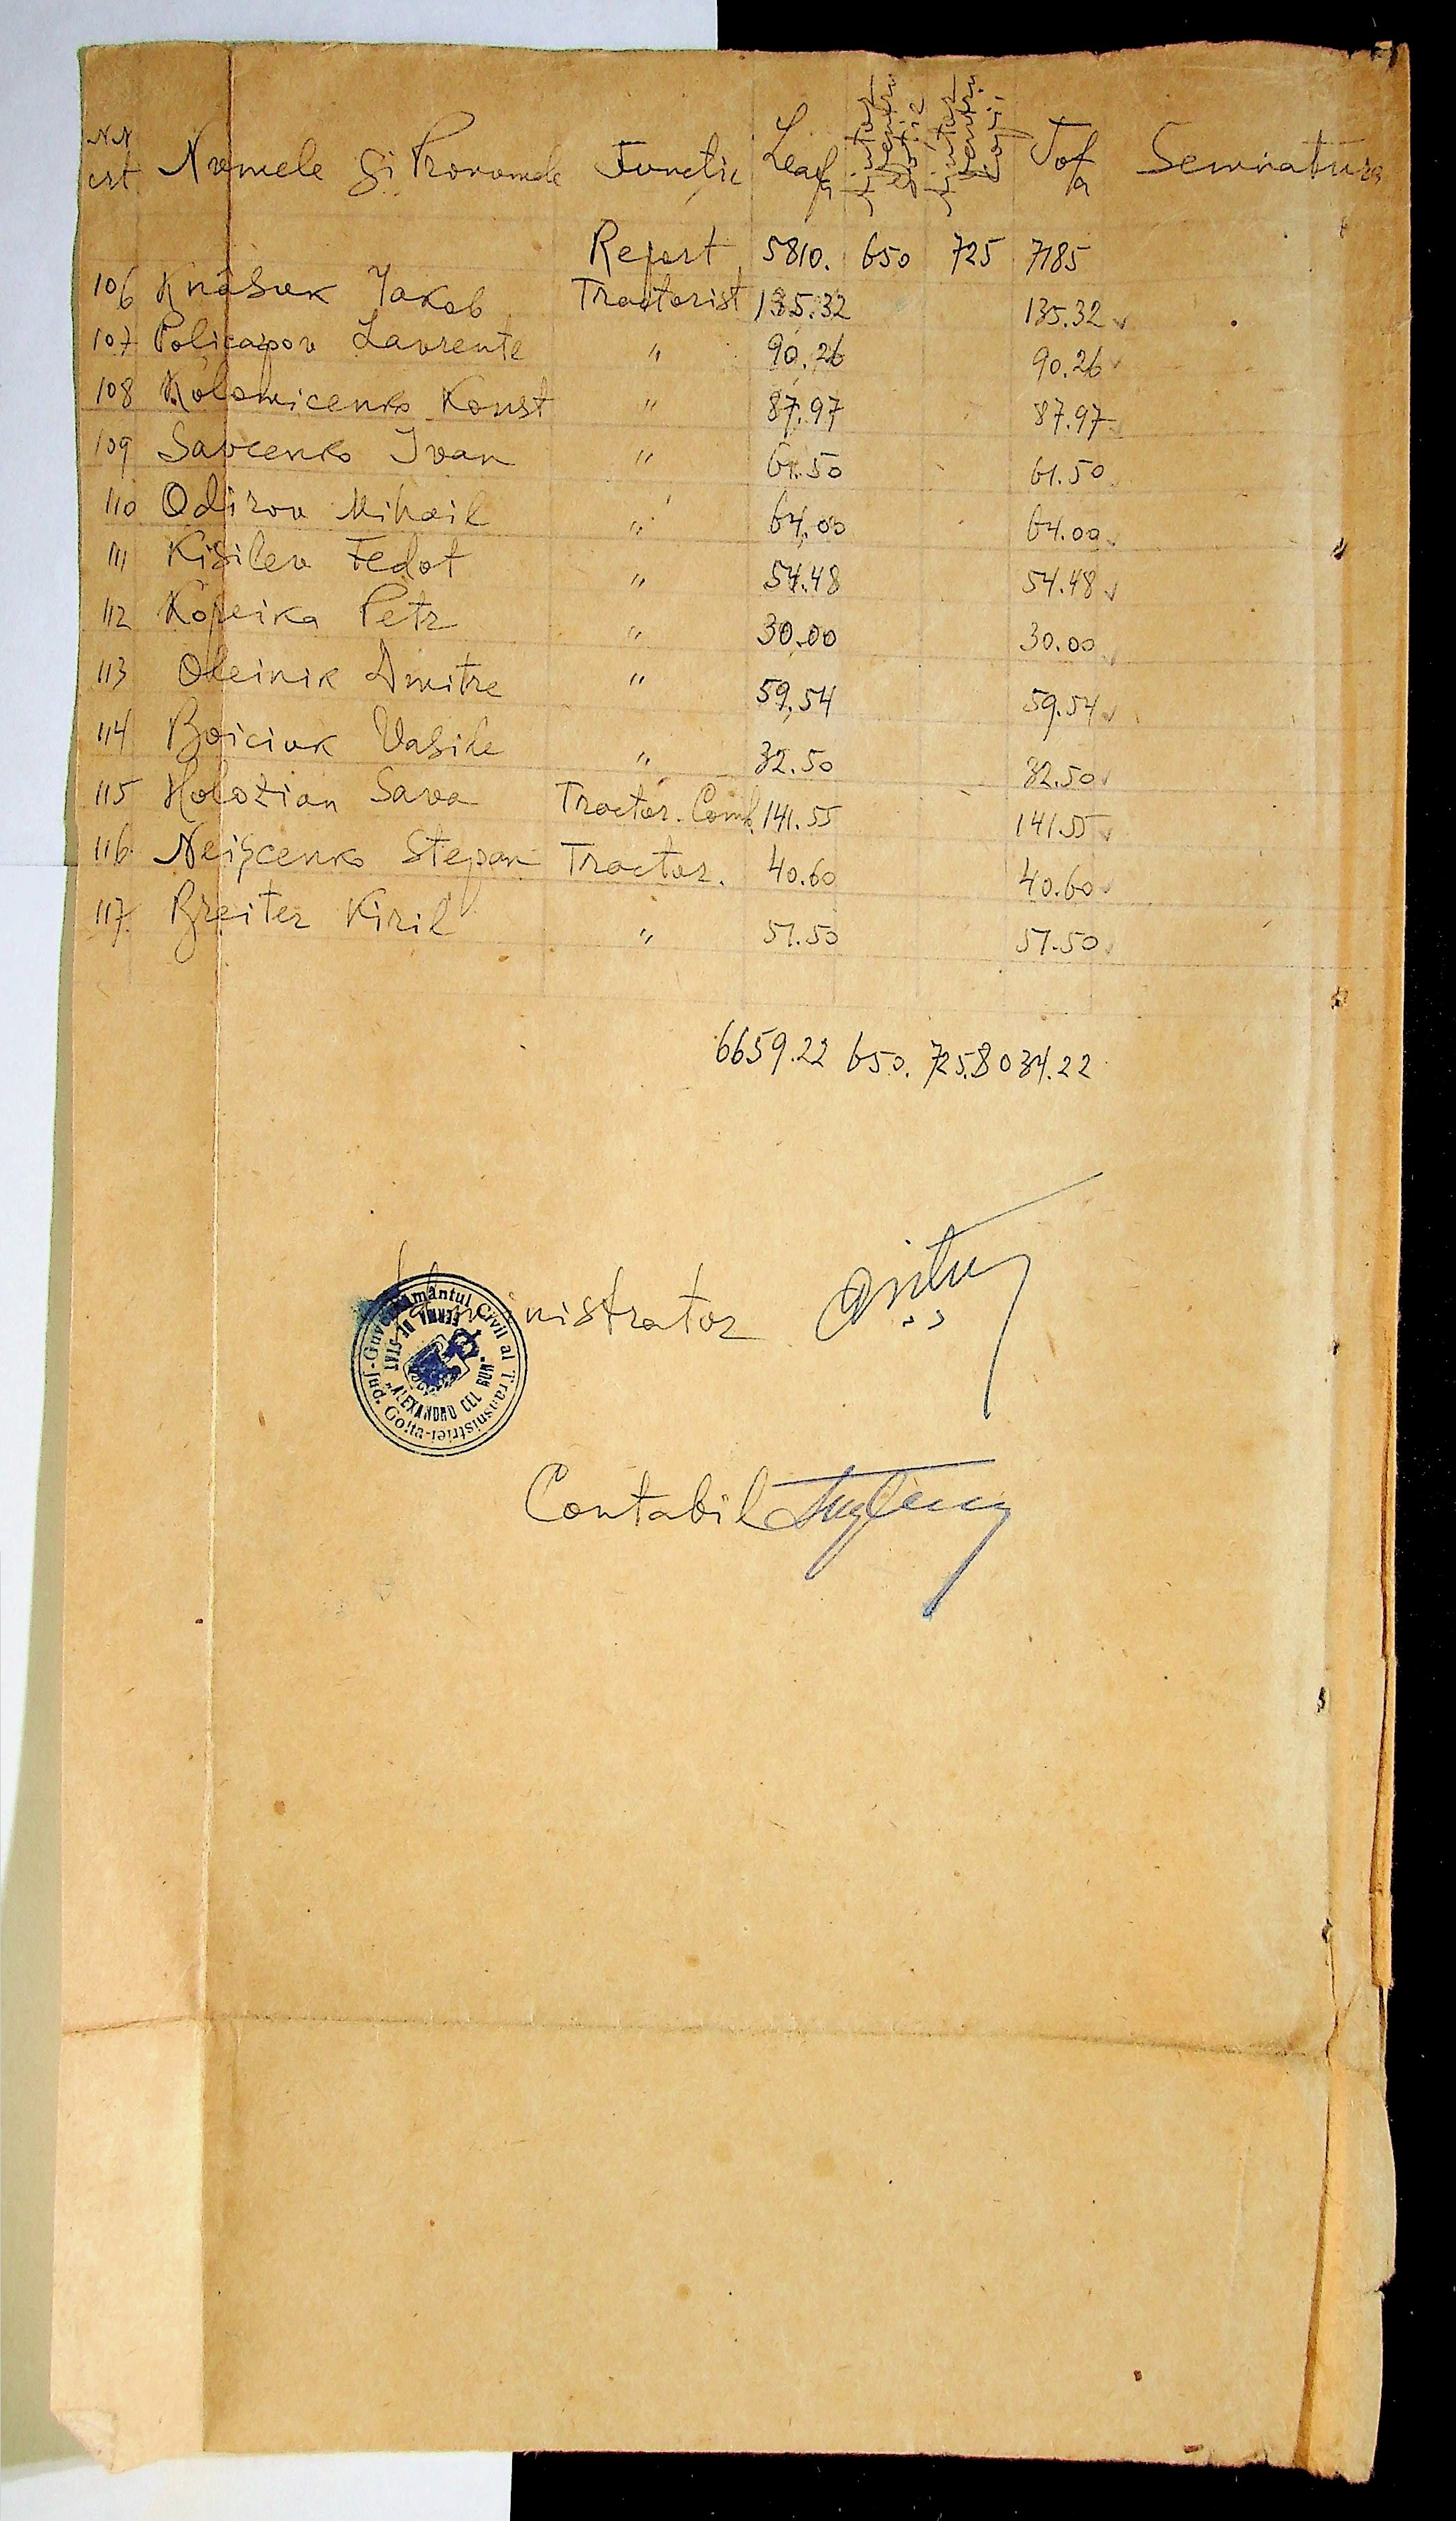 NN crt. Numele și Pronumele Functie Leafa Ajutor pentru soție Ajutor pentru copii Tota Semnatura
Report 5810. 650 725 7185
106 Knäsuk Jakob Tractorist 135.32 135.32
107 Policarpov Lavrente " 90.26 90.26
108 Kolomicenko Konst " 87.97 87.97
109 Savcenko Ivan " 61.50 61.50
110 Odirov Mihail " 64.00 64.00
111 Kisilev Fedot " 54.48 54.48
112 Kopeika Petr " 30.00 30.00
113 Oleinik Dmitre " 59.54 59.54
114 Boiciuk Vasile " 32.50 32.50
115 Holoțian Sava Tractor. Comb. 141.55 141.55
116 Neișcenko Stepan Tractor. 40.60 40.60
117. Breiter Kiril " 51.50 51.50
6659.22 650. 725. 8034.22
Administrator
Guvernamântul Civil al Transnistriei-Jud. Golta-
FERMA DE STAT
"ALEXANDRU CEL BUN"
Contabil